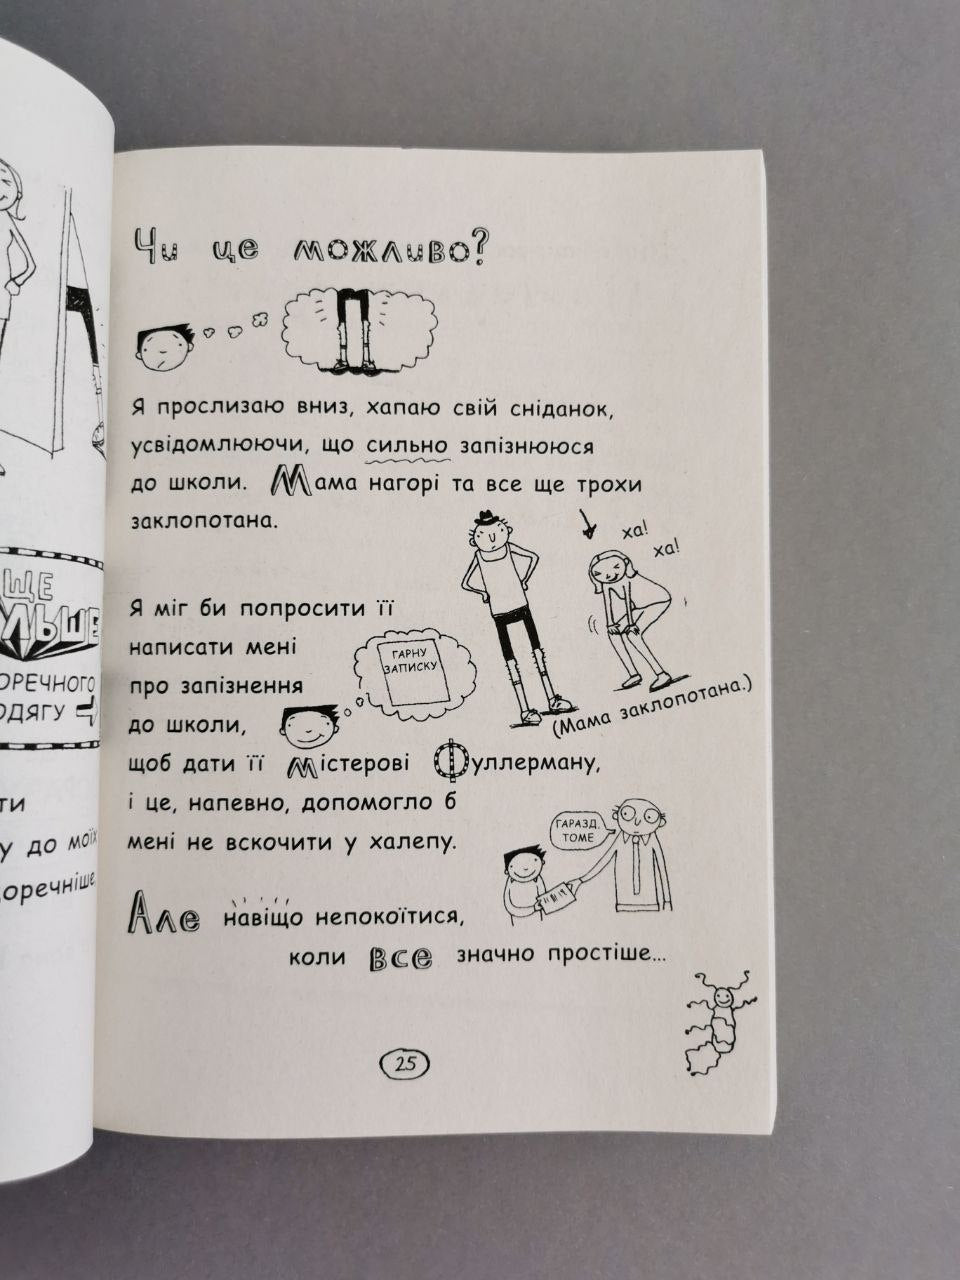 ЩЕ
ЛЬШЕ
ОРЕЧНОГО
ОДЯГУ
ти
у до моїх
доречніше
Чи це можливо?
Я прослизаю вниз, хапаю свій сніданок,
усвідомлюючи, що сильно запізнююся
до школи. Мама нагорі та все ще трохи
заклопотана.
ха!
ха!
(Мама заклопотана.)
Я міг би попросити її
написати мені
про запізнення
до школи,
ГАРНУ
ЗАПИСКУ
щоб дати її містерові Фуллерману,
і це, напевно, допомогло б
мені не вскочити у халепу.
ГАРАЗД,
ТОМЕ
Але навіщо непокоїтися,
коли все значно простіше...
25